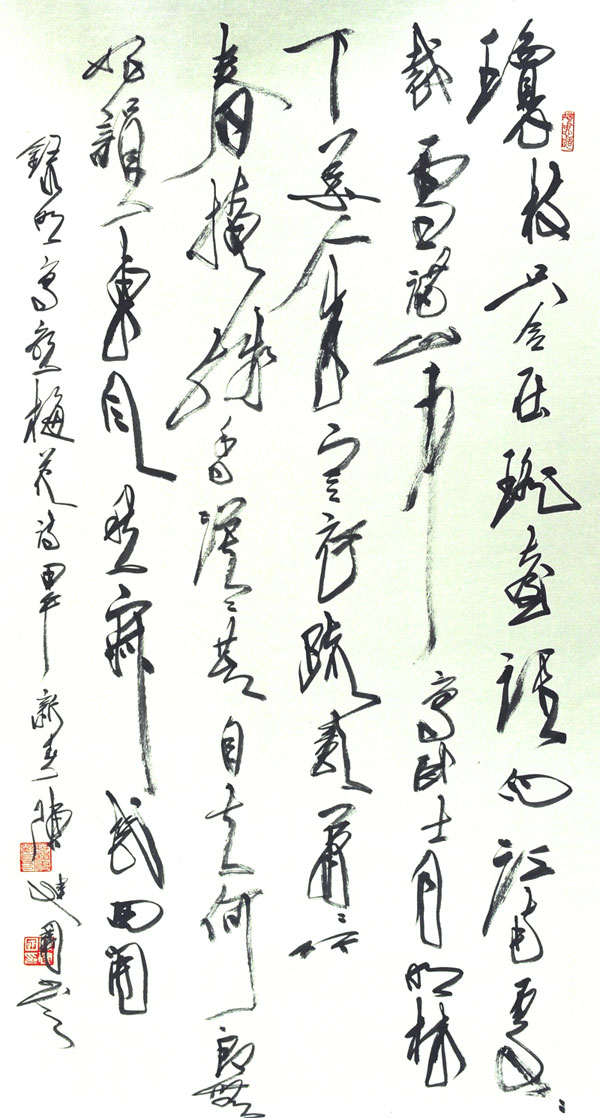 瓊枝只合在瑤臺誰向江南處〻
栽雪滿山中高臥士月明林
下美人來寒依疏影蕭〻竹
春掩殘香漠〻苔自去何郎無
好韻東風愁寂幾回開
錄明高啟梅花詩甲午新春陳書